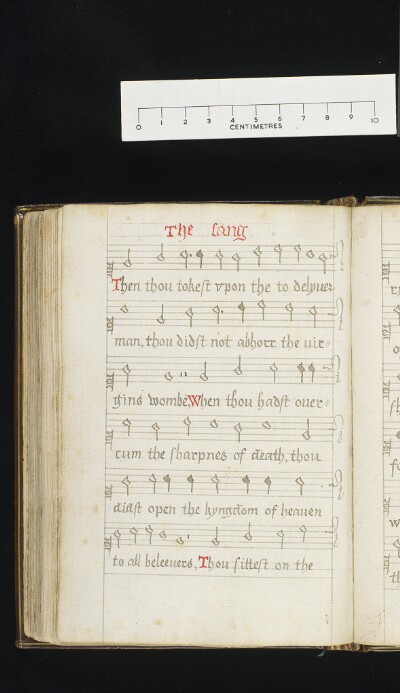 0 1 2 3 4 5 6 7 8 9 10
CENTIMETRES
The song
Then thou tokest vpon the to delyuer
man, thou didst not abhorr the uir-
gins wombe, When thou hadst ouer-
cum the sharpnes of death, thou
didst open the kyngdom of heauen
to all beleeuers, Thou sittest on the